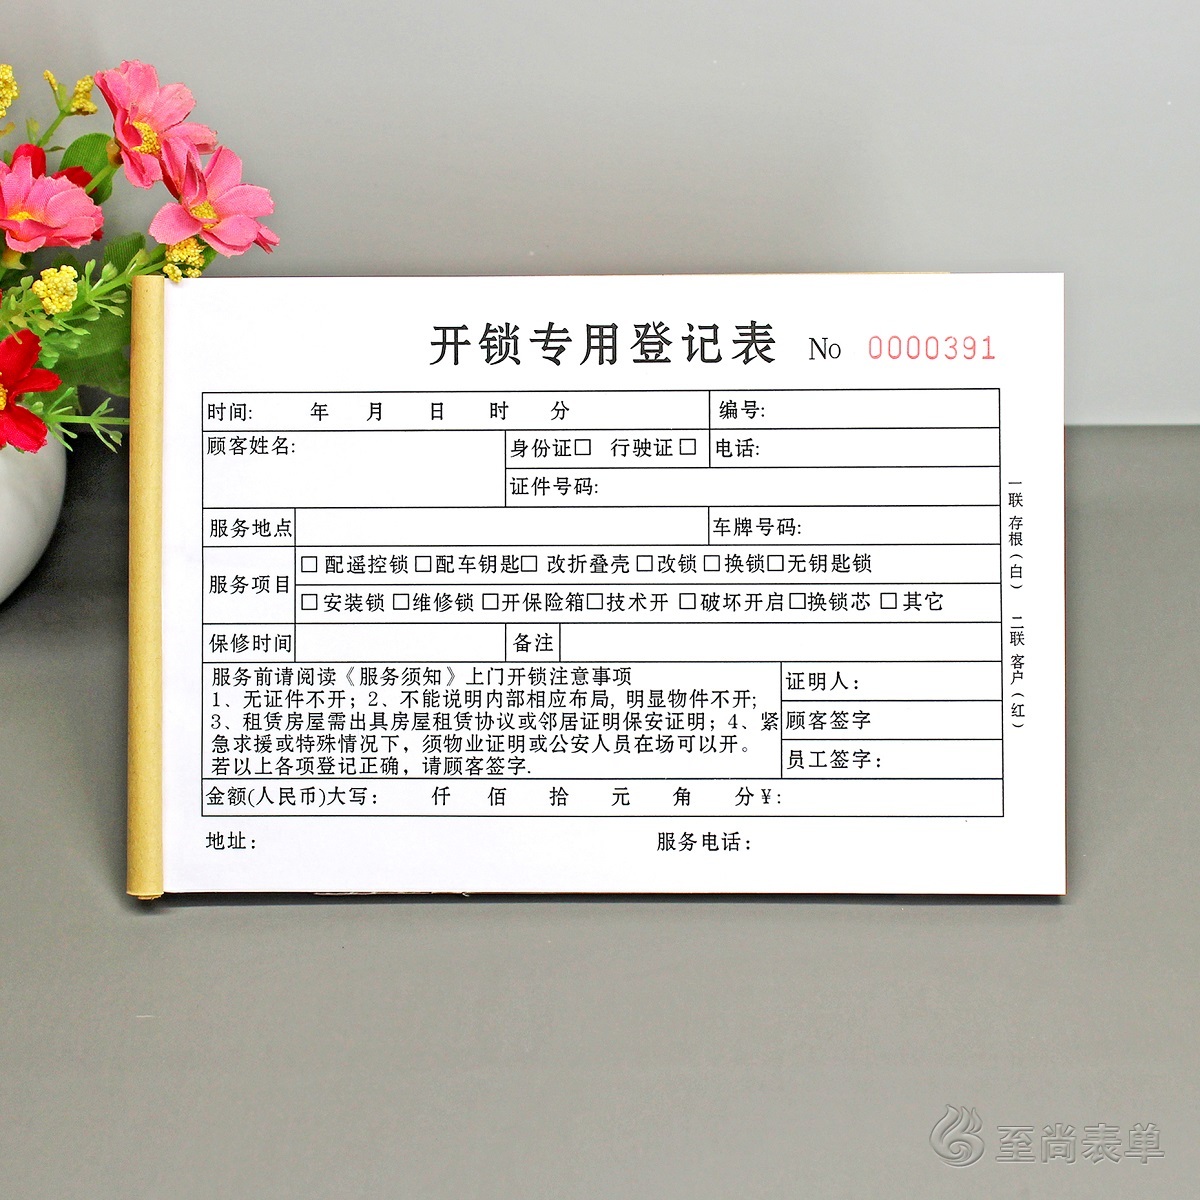 开锁专用登记表 No 0000391
时间: 年 月 日 时 分 编号:
顾客姓名: 身份证□ 行驶证□ 电话:
证件号码:
服务地点 车牌号码:
服务项目
□配遥控锁□配车钥匙□改折叠壳□改锁□换锁□无钥匙锁
□安装锁□维修锁□开保险箱□技术开□破坏开启□换锁芯□其它
保修时间 备注
服务前请阅读《服务须知》上门开锁注意事项
1、无证件不开；2、不能说明内部相应布局, 明显物件不开;
3、租赁房屋需出具房屋租赁协议或邻居证明保安证明；4、紧
急求援或特殊情况下，须物业证明或公安人员在场可以开。
若以上各项登记正确，请顾客签字.
证明人：
顾客签字
员工签字：
金额(人民币)大写： 仟 佰 拾 元 角 分¥:
地址： 服务电话：
一联 存根（白） 二联 客户（红）
至尚表单